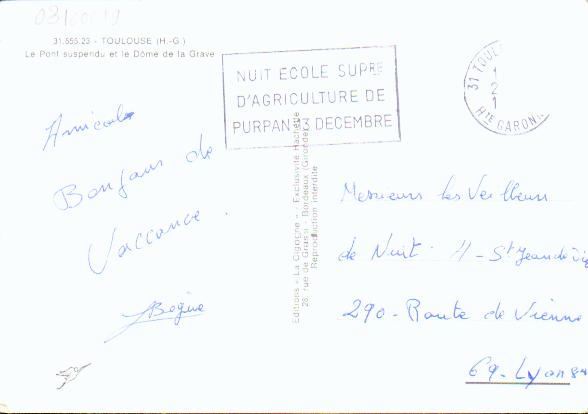 31.555.23 - TOULOUSE (H.-G.)
Le Pont suspendu et le Dôme de la Grave
NUIT ECOLE SUPRE
D'AGRICULTURE DE
PURPAN 3 DECEMBRE
31 TOUL
1
2
1
HTE GARON
Amicale
Bonjour de
Vaccance.
Editions « La Cigogne » - Exclusivité Hachette
28, rue de Grassi - Bordeaux (Gironde)
Reproduction interdite
Messieurs les Veilleurs
de Nuit. H - St Jean de
290 - Route de Vienne
69 - Lyon 8